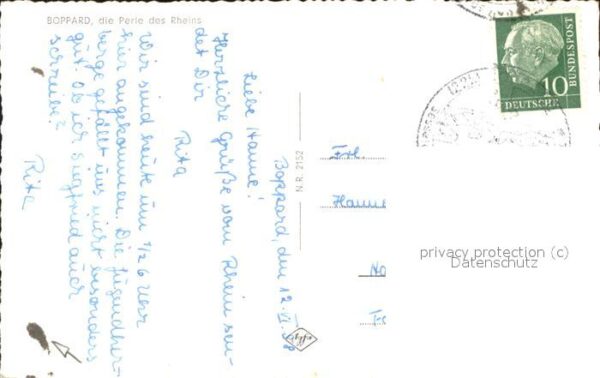 BOPPARD, die Perle des Rheins
Boppard, den 12. VI. 58
Liebe Hanne!
Herzliche Grüße vom Rhein sen-
det Dir
Rita
Wir sind heute um 1/2 6 Uhr
hier angekommen. Die Jugendher-
berge gefällt uns nicht besonders
gut. Ob ich Siegfried auch
schreibe?
Rita
N.R. 2152
Frl.
Hanne
No
DEUTSCHE
BUNDESPOST
10
privacy protection (c)
Datenschutz